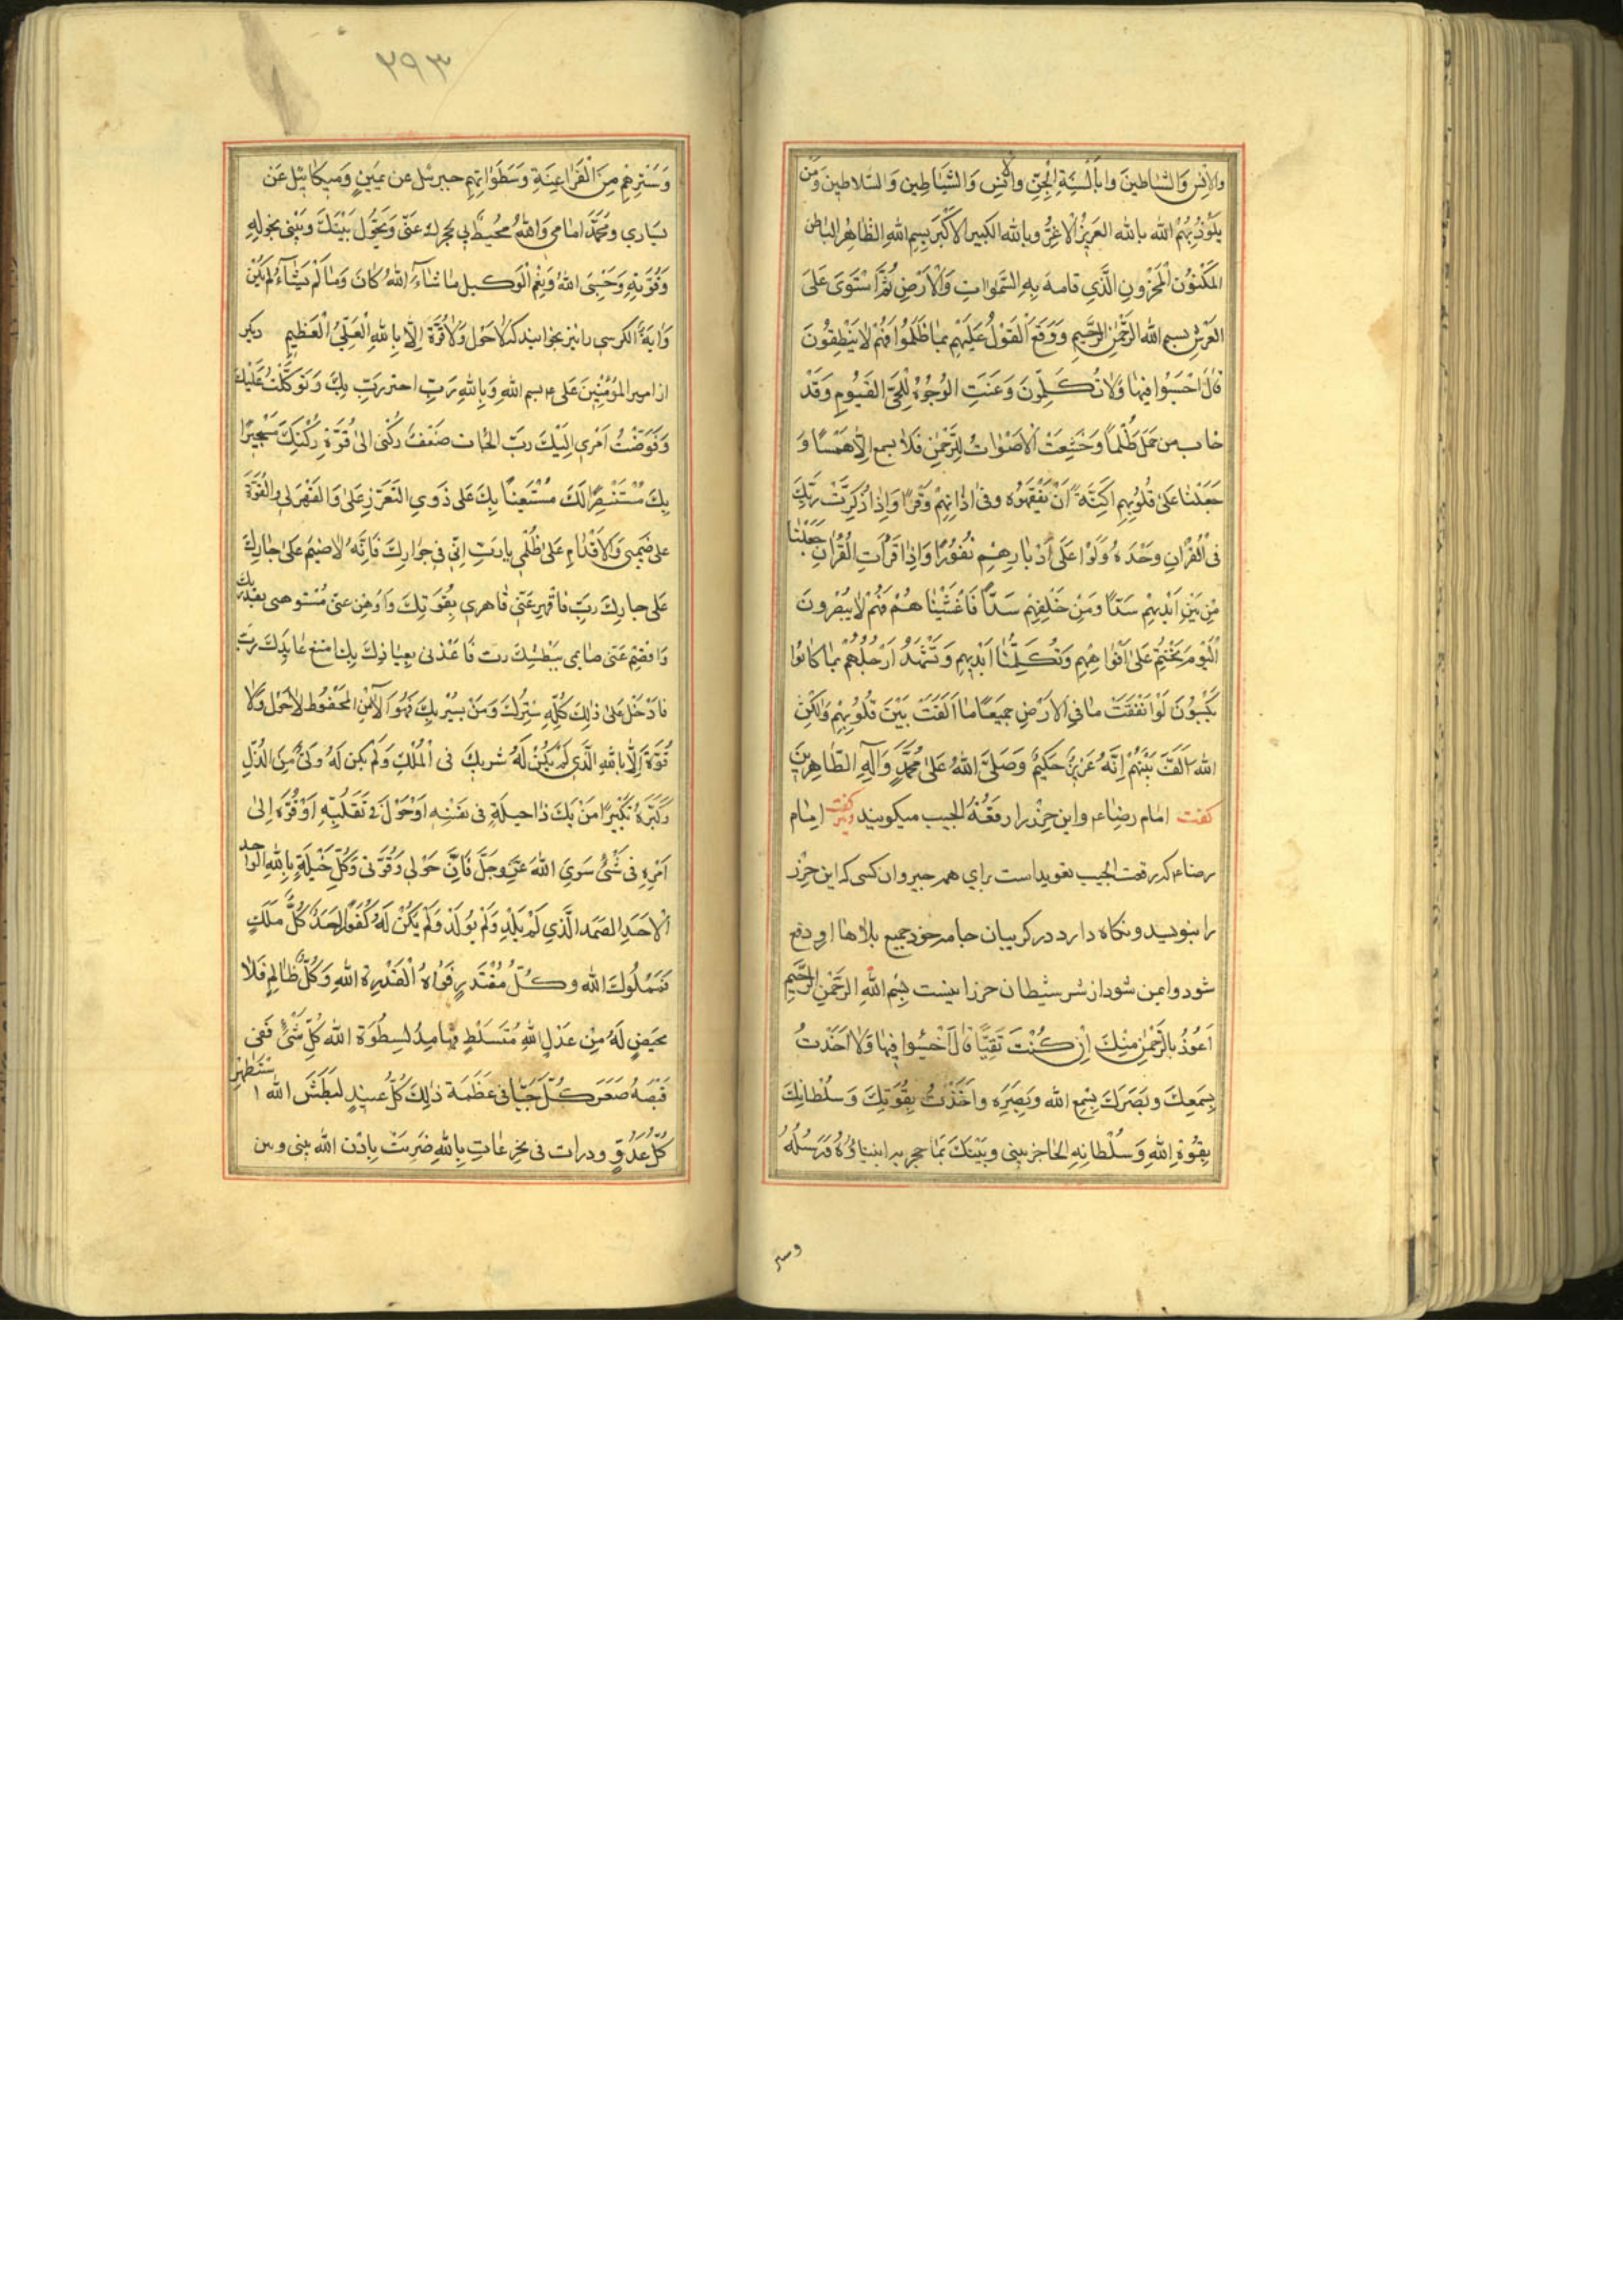 والانس والشياطين وابالسة الجن والانس والشياطين والسلاطين ومن
يلوذ بهم الله بالله العزيز الاعز وبالله الكبير الاكبر بسم الله الظاهر الباطن
المكنون المخزون الذي قامه به السموات والارض ثم استوى على
العرش بسم الله الرحمن الرحيم ووقع القول عليهم بما ظلموا فهم لا ينطقون
قال اخسئوا فيها ولا تكلمون وعنت الوجوه للحي القيوم وقد
خاب من حمل ظلما وخشعت الاصوات للرحمن فلا تسمع الا همسا و
جعلنا على قلوبهم اكنة ان يفقهوه وفى اذانهم وقرا واذا ذكرت ربك
فى القران وحده ولوا على ادبارهم نفورا واذا قرأت القران جعلنا
من بين ايديهم سدا ومن خلفهم سدا فاغشيناهم فهم لا يبصرون
اليوم نختم على افواههم وتكلمنا ايديهم وتشهد ارجلهم بما كانوا
يكسبون لو انفقت ما في الارض جميعا ما الفت بين قلوبهم ولكن
الله الف بينهم انه عزيز حكيم وصلى الله على محمد وآله الطاهرين
كفت امام رضا ع م واين حرز را رقعة الجيب ميكويند ونيز كفت امام
رضا ع م كه رقعت الجيب تعويذ است براي همه چيز وان كسى كه اين حرز
را بنويسد ونكاه دارد در كريبان جامه خود جميع بلاها او دفع
شود وايمن شود از شر شيطان حرز اينست بسم الله الرحمن الرحيم
اعوذ بالرحمن منك ان كنت تقيا قال اخسئوا فيها ولا اخذت
بسمعك وبصرك بسمع الله وبصره واخذت بقوتك وسلطانك
بقوة الله وسلطانه الحاجز بينى وبينك بما حجز به انبياؤه ورسله
وستر
٢٩٣
وسترهم من الفراعنة وسطواتهم جبرئيل عن يمينى وميكائيل عن
يساري ومحمد امامى والله محيط بى يحجزك عنى ويحول بينك وبينى بحوله
وقوته وحسبى الله ونعم الوكيل ما شاء الله كان وما لم يشاء لم يكن
واية الكرسى را نيز بخوانيد كه لا حول ولا قوة الا بالله العلي العظيم ديكر
از امير المؤمنين على ع م بسم الله وبالله رب احترزت بك وتوكلت عليك
وفوضت امري اليك رب الجات ضعف ركنى الى قوة ركنك مستجيرا
بك مستنصرا لك مستعينا بك على ذوي التعزز على والقهر لى والقوة
على ضيمى والاقدام على ظلمى يا رب انى فى جوارك فانه لا ضيم على جارك
على جارك رب فاقهر عنى قاهرى بقوتك واوهن عنى مستوهنى بقدرتك
واقصم عنى ضايمى ببطشك رب فاعذنى بعياذك بك امتنع عايذك رب
فادخل على ذلك كله سترك ومن يستر بك فهو الآمن المحفوظ لا حول ولا
قوة الا بالله الذي لم يكن له شريك فى الملك ولم يكن له ولى من الذل
وكبره تكبيرا من يك ذا حيلة فى نفسه او حول فى تقلبه او قوة الى
امره فى شئ سوى الله عز وجل فان حولى وقوتى وكل حيلة بالله الواحد
الاحد الصمد الذي لم يلد ولم يولد ولم يكن له كفوا احد كل ملك
فمملوك الله وكل مقتدر فواه القدرة الله وكل ظالم فلا
محيص له من عدل الله متسلط لسطوة الله كل شئ ففى
قبضه صغر كل جبا فى عظمة ذلك كل عنيد لبطش الله استظهر
كل عدو ودرات فى نحر عات بالله ضربت باذن الله بينى وبين